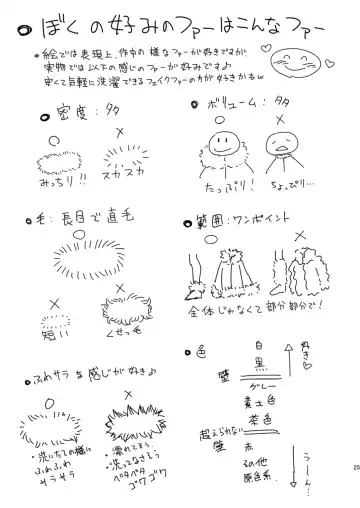 ぼくの好みのファーはこんなファー
・絵では表現上、作中の様なファーが好きですが
実物では以下の感じのファーが好みです♪
安くて気軽に洗濯できるフェイクファーの方が好きかもw
密度：多
○
×
みっちり!!
スカスカ
ボリューム：多
○
×
たっぷり!
ちょっぴり…
毛：長目で直毛
○
×
×
短い
くせっ毛
範囲：ワンポイント
○
×
全体じゃなくて部分部分で!
ふわサラな感じが好き♪
○
×
・洗いたての様に
ふわふわ
サラサラ
・濡れてそう
・洗ってなさそう
ベタベタ
ゴワゴワ
色
白
黒
壁
グレー
黄土色
茶色
超えられない
壁
赤
その他
原色系
好き♡
うーん…
25